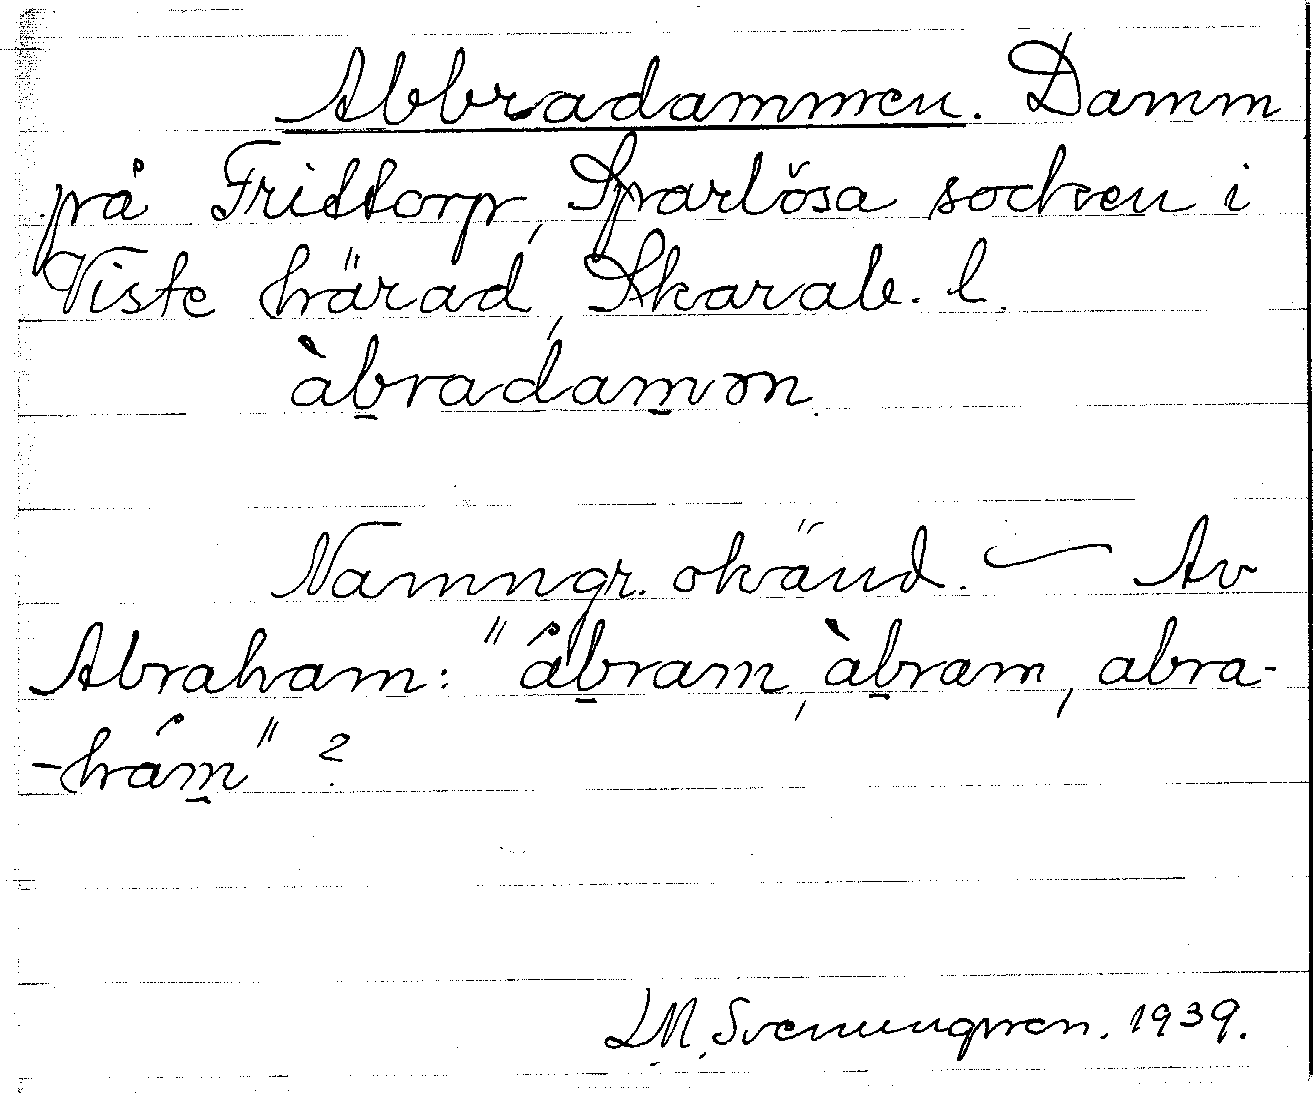 Abbradammen. Damm
på Frittorp, Sparlösa socken i
Viste härad, Skarab. l.
àb̲radam̲ən.
Namngr. okänd. — Av
Abraham: "áb̲ram, àb̲ram, abra-
-hám̲"?
L.M. Svenungsson. 1939.